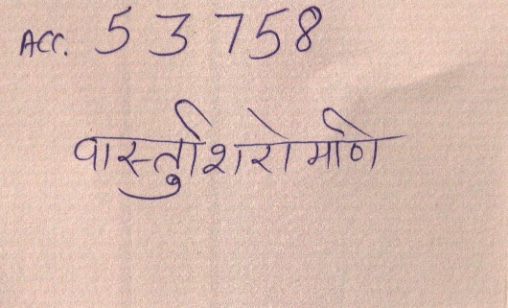 ACC. 53758
वास्तुशिरोमणि